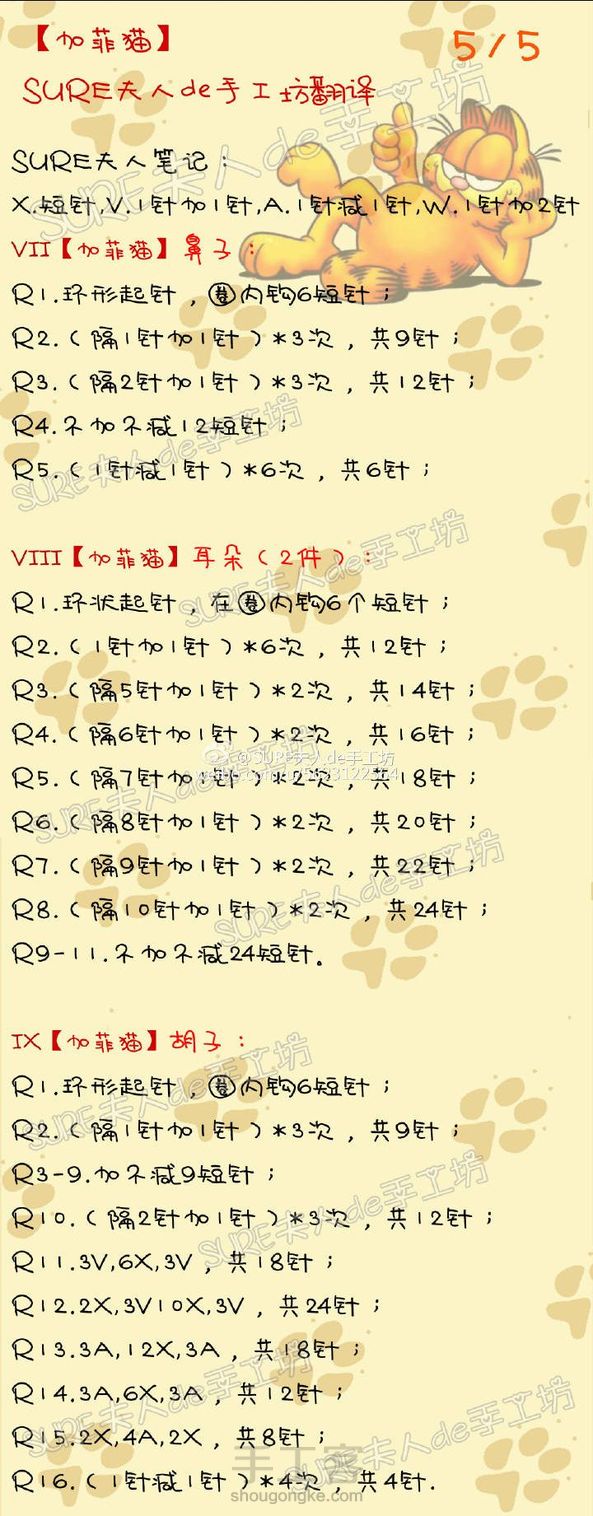 【加菲猫】
5/5
SURE夫人de手工坊翻译
SURE夫人笔记：
X.短针,V.1针加1针,A.1针减1针,W.1针加2针
VII【加菲猫】鼻子：
R1.环形起针，圈内钩6短针；
R2.（隔1针加1针）*3次，共9针；
R3.（隔2针加1针）*3次，共12针；
R4.不加不减12短针；
R5.（1针减1针）*6次，共6针；
VIII【加菲猫】耳朵（2件）：
R1.环状起针，在圈内钩6个短针；
R2.（1针加1针）*6次，共12针；
R3.（隔5针加1针）*2次，共14针；
R4.（隔6针加1针）*2次，共16针；
@SURE夫人de手工坊
R5.（隔7针加1针）*2次，共18针；
R6.（隔8针加1针）*2次，共20针；
R7.（隔9针加1针）*2次，共22针；
R8.（隔10针加1针）*2次，共24针；
R9-11.不加不减24短针。
IX【加菲猫】胡子：
R1.环形起针，圈内钩6短针；
R2.（隔1针加1针）*3次，共9针；
R3-9.加不减9短针；
R10.（隔2针加1针）*3次，共12针；
R11.3V,6X,3V，共18针；
R12.2X,3V10X,3V，共24针；
R13.3A,12X,3A，共18针；
R14.3A,6X,3A，共12针；
R15.2X,4A,2X，共8针；
R16.（1针减1针）*4次，共4针.
手工客
shougongke.com